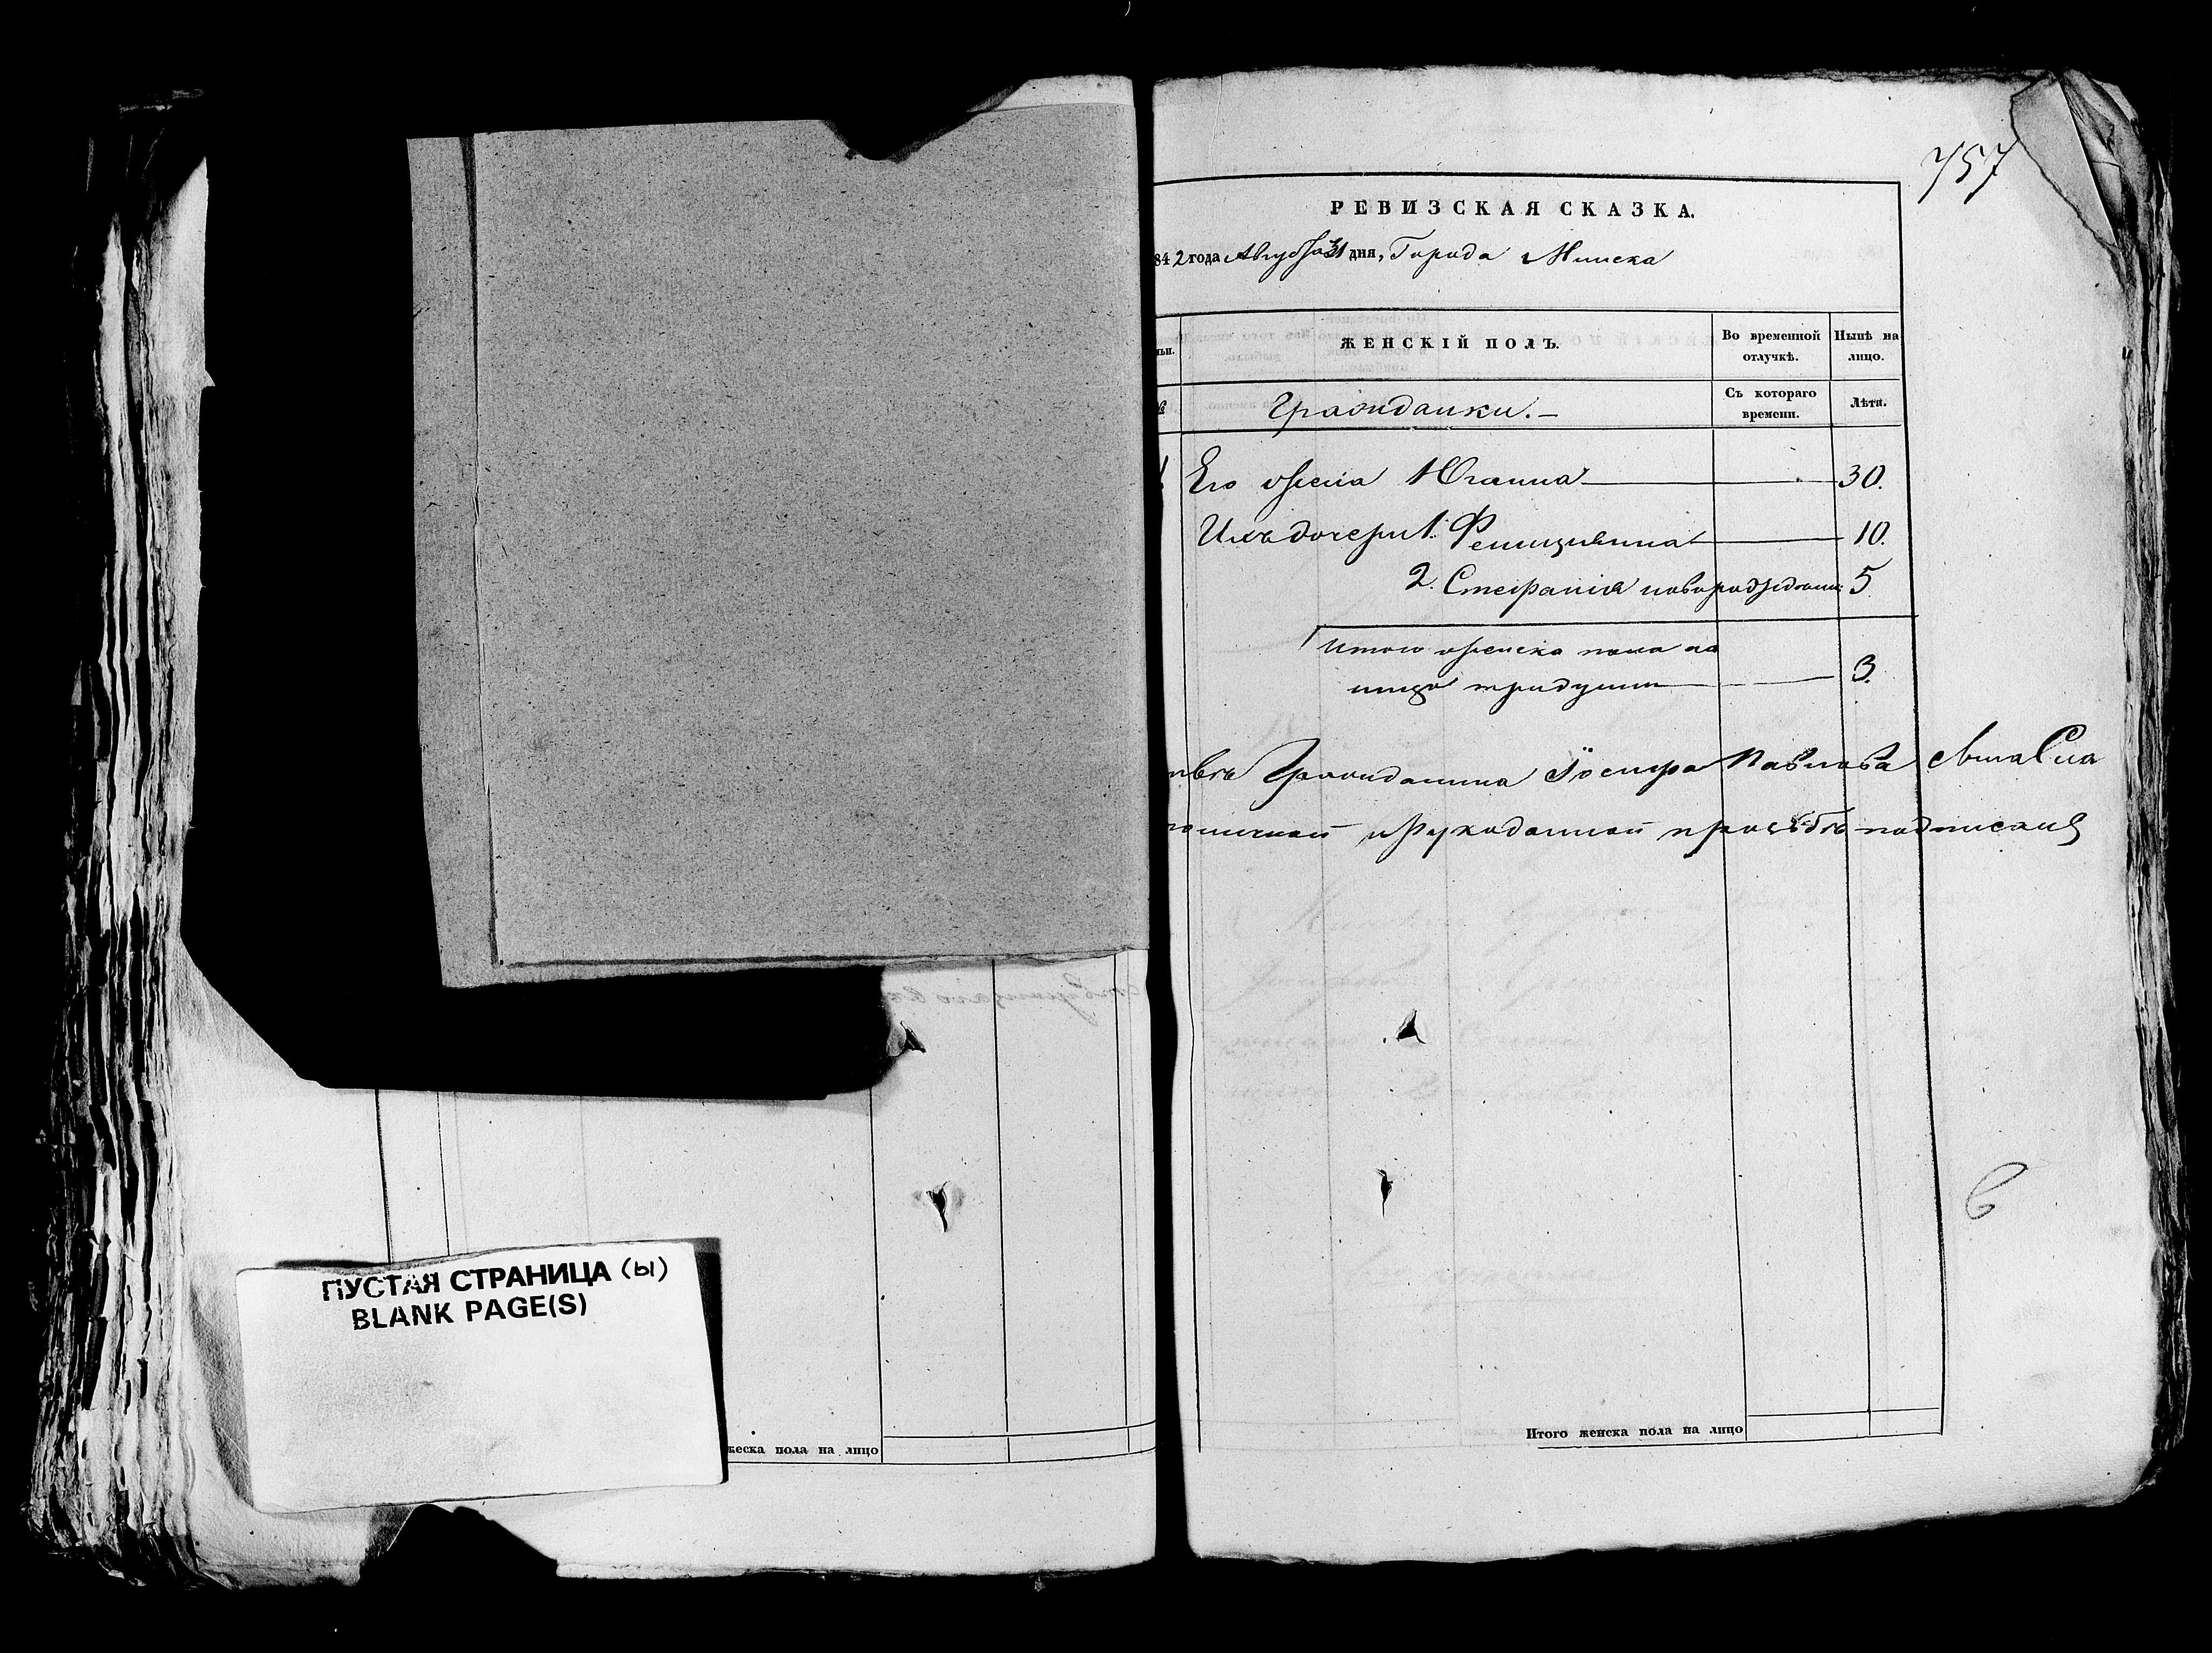 757
РЕВИЗСКАЯ СКАЗКА.
842 года Августа 31 дня, Города Минска
ЖЕНСКІЙ ПОЛЪ.
Во временной отлучкѣ.
Нынѣ на лицо.
Гражданки.—
Съ котораго времени.
Лѣта.
Его жена Юганна 30.
Ихъ дочери 1. Фелицияна 10.
2. Стефанія новорожден: 5
Итого женска пола на
лицо три души 3.
Гражданина Іосифа Павлова
личной и рукоданной прозьбѣ подписалъ
Итого женска пола на лицо
ПУСТАЯ СТРАНИЦА (ы)
BLANK PAGE(S)
жеска пола на лицо